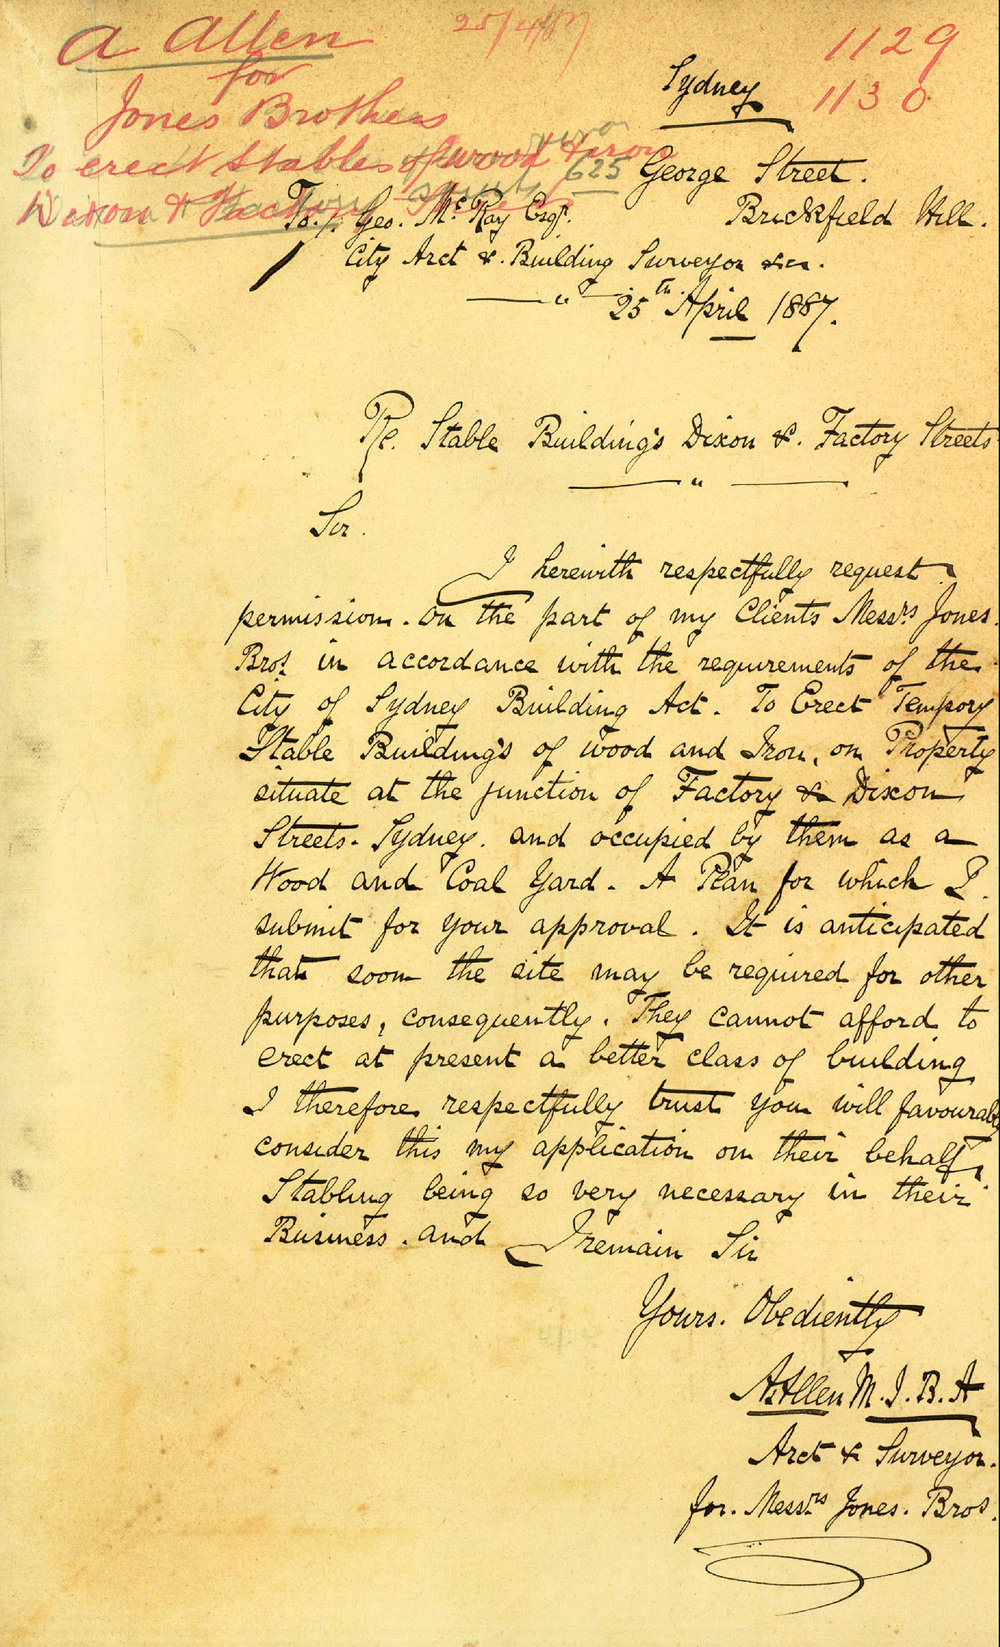 A Allen
for
Jones Brothers
To erect stables of wood & iron
Dixon & Factory Streets
25/4/87
1129
1130
Sydney
625 George Street.
Brickfield Hill.
To. Geo. McRay Esqr.
City Arct &. Building Surveyor &c.
25th April 1887.
Re. Stable Buildings Dixon &. Factory Streets
Sir.
I herewith respectfully request
permission. on the part of my Clients Messrs Jones.
Bros. in accordance with the requirements of the
City of Sydney Building Act. To Erect Tempory
Stable Buildings of wood and Iron, on Property
situate at the junction of Factory & Dixon
Streets. Sydney. and occupied by them as a
Wood and Coal Yard. A Plan for which I
submit for your approval. It is anticipated
that soon the site may be required for other
purposes, consequently. They cannot afford to
erect at present a better class of building
I therefore respectfully trust you will favourably
consider this my application on their behalf,
Stabling being so very necessary in their
Business. and I remain Sir
Yours. Obediently
A. Allen M.I.B.A
Arct & Surveyor.
for. Messrs Jones. Bros.